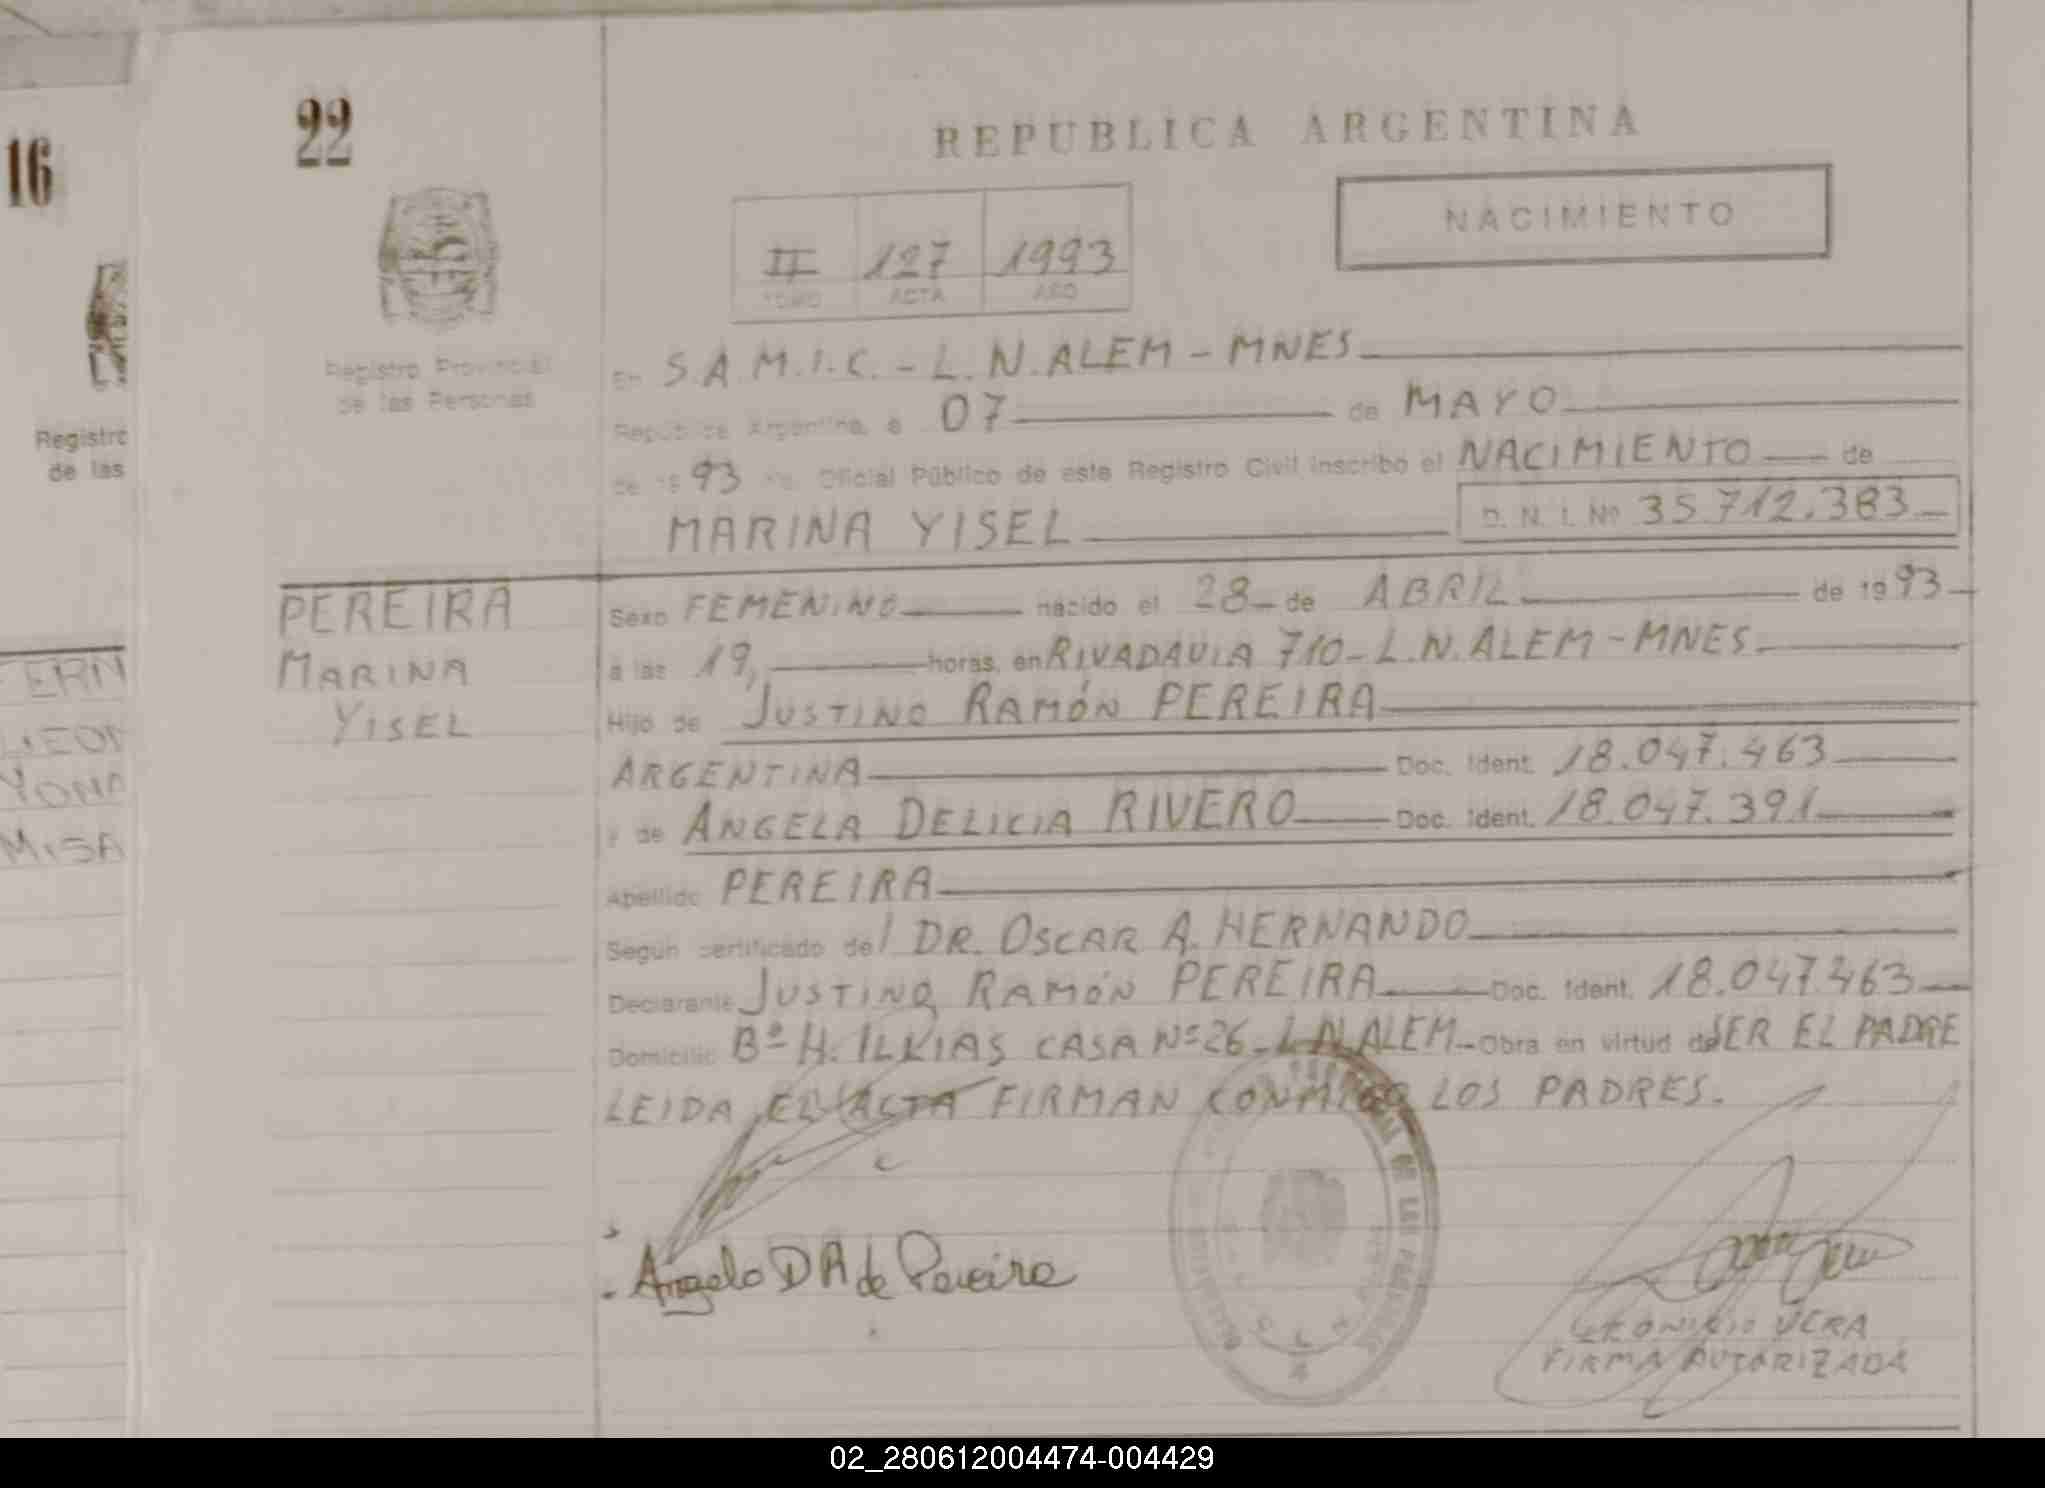 16
Registro
de las
FERN
LEON
YONA
MISA
22
Registro Provincial
de las Personas
PEREIRA
MARINA
YISEL
REPUBLICA ARGENTINA
NACIMIENTO
II 127 1993
TOMO ACTA AÑO
En S.A.M.I.C. - L.N.ALEM - MNES
República Argentina, a 07 de MAYO
de 1993 Oficial Público de este Registro Civil inscribo el NACIMIENTO de
MARINA YISEL D. N. I. Nº 35.712.383
Sexo FEMENINO nacido el 28 de ABRIL de 1993
a las 19, horas, en RIVADAVIA 710 - L.N.ALEM - MNES
Hijo de JUSTINO RAMÓN PEREIRA
ARGENTINA Doc. Ident. 18.047.463
y de ANGELA DELICIA RIVERO Doc. Ident. 18.047.391
Apellido PEREIRA
Según certificado del DR. OSCAR A. HERNANDO
Declarante JUSTINO RAMÓN PEREIRA Doc. Ident. 18.047.463
Domicilio Bº H. ILKIAS CASA Nº 26 - L.N.ALEM - Obra en virtud de SER EL PADRE
LEIDA EL ACTA FIRMAN CONMIGO LOS PADRES.
Angela D R de Pereira
VERA
FIRMA AUTORIZADA
02_280612004474-004429